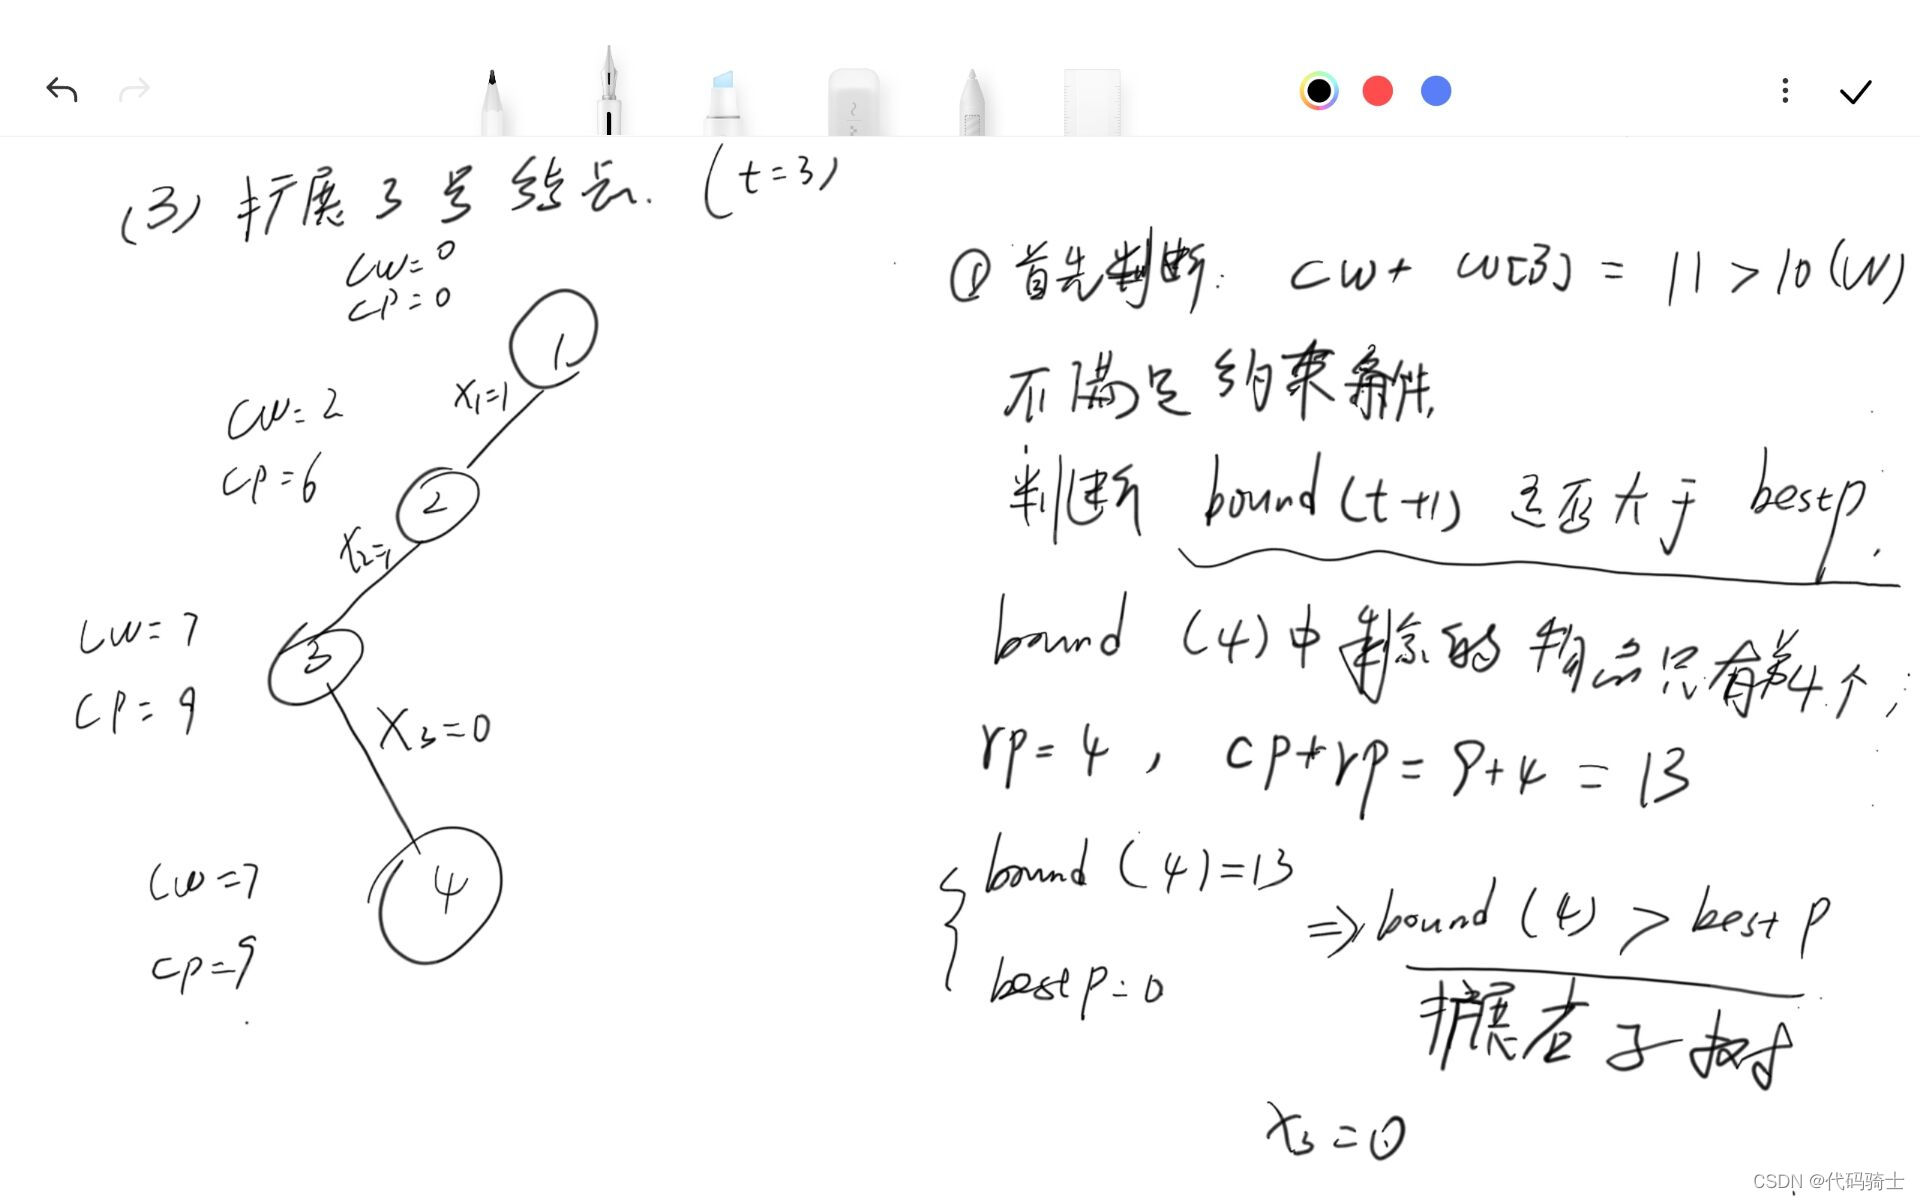 (3) 扩展3号结点. (t=3)
cw=0
cp=0
1
x₁=1
cw=2
cp=6
2
x₂=1
cw=7
cp=9
3
x₃=0
cw=7
cp=9
4
① 首先判断: cw+ w[3] = 11 > 10 (W)
不满足约束条件,
判断 bound (t+1) 是否大于 bestp.
bound (4) 中剩余的物品只有第4个;
rp=4, cp+rp=9+4=13
bound (4)=13
bestp=0
⇒ bound (4) > bestp
扩展右子树
x₃=0
CSDN @代码骑士